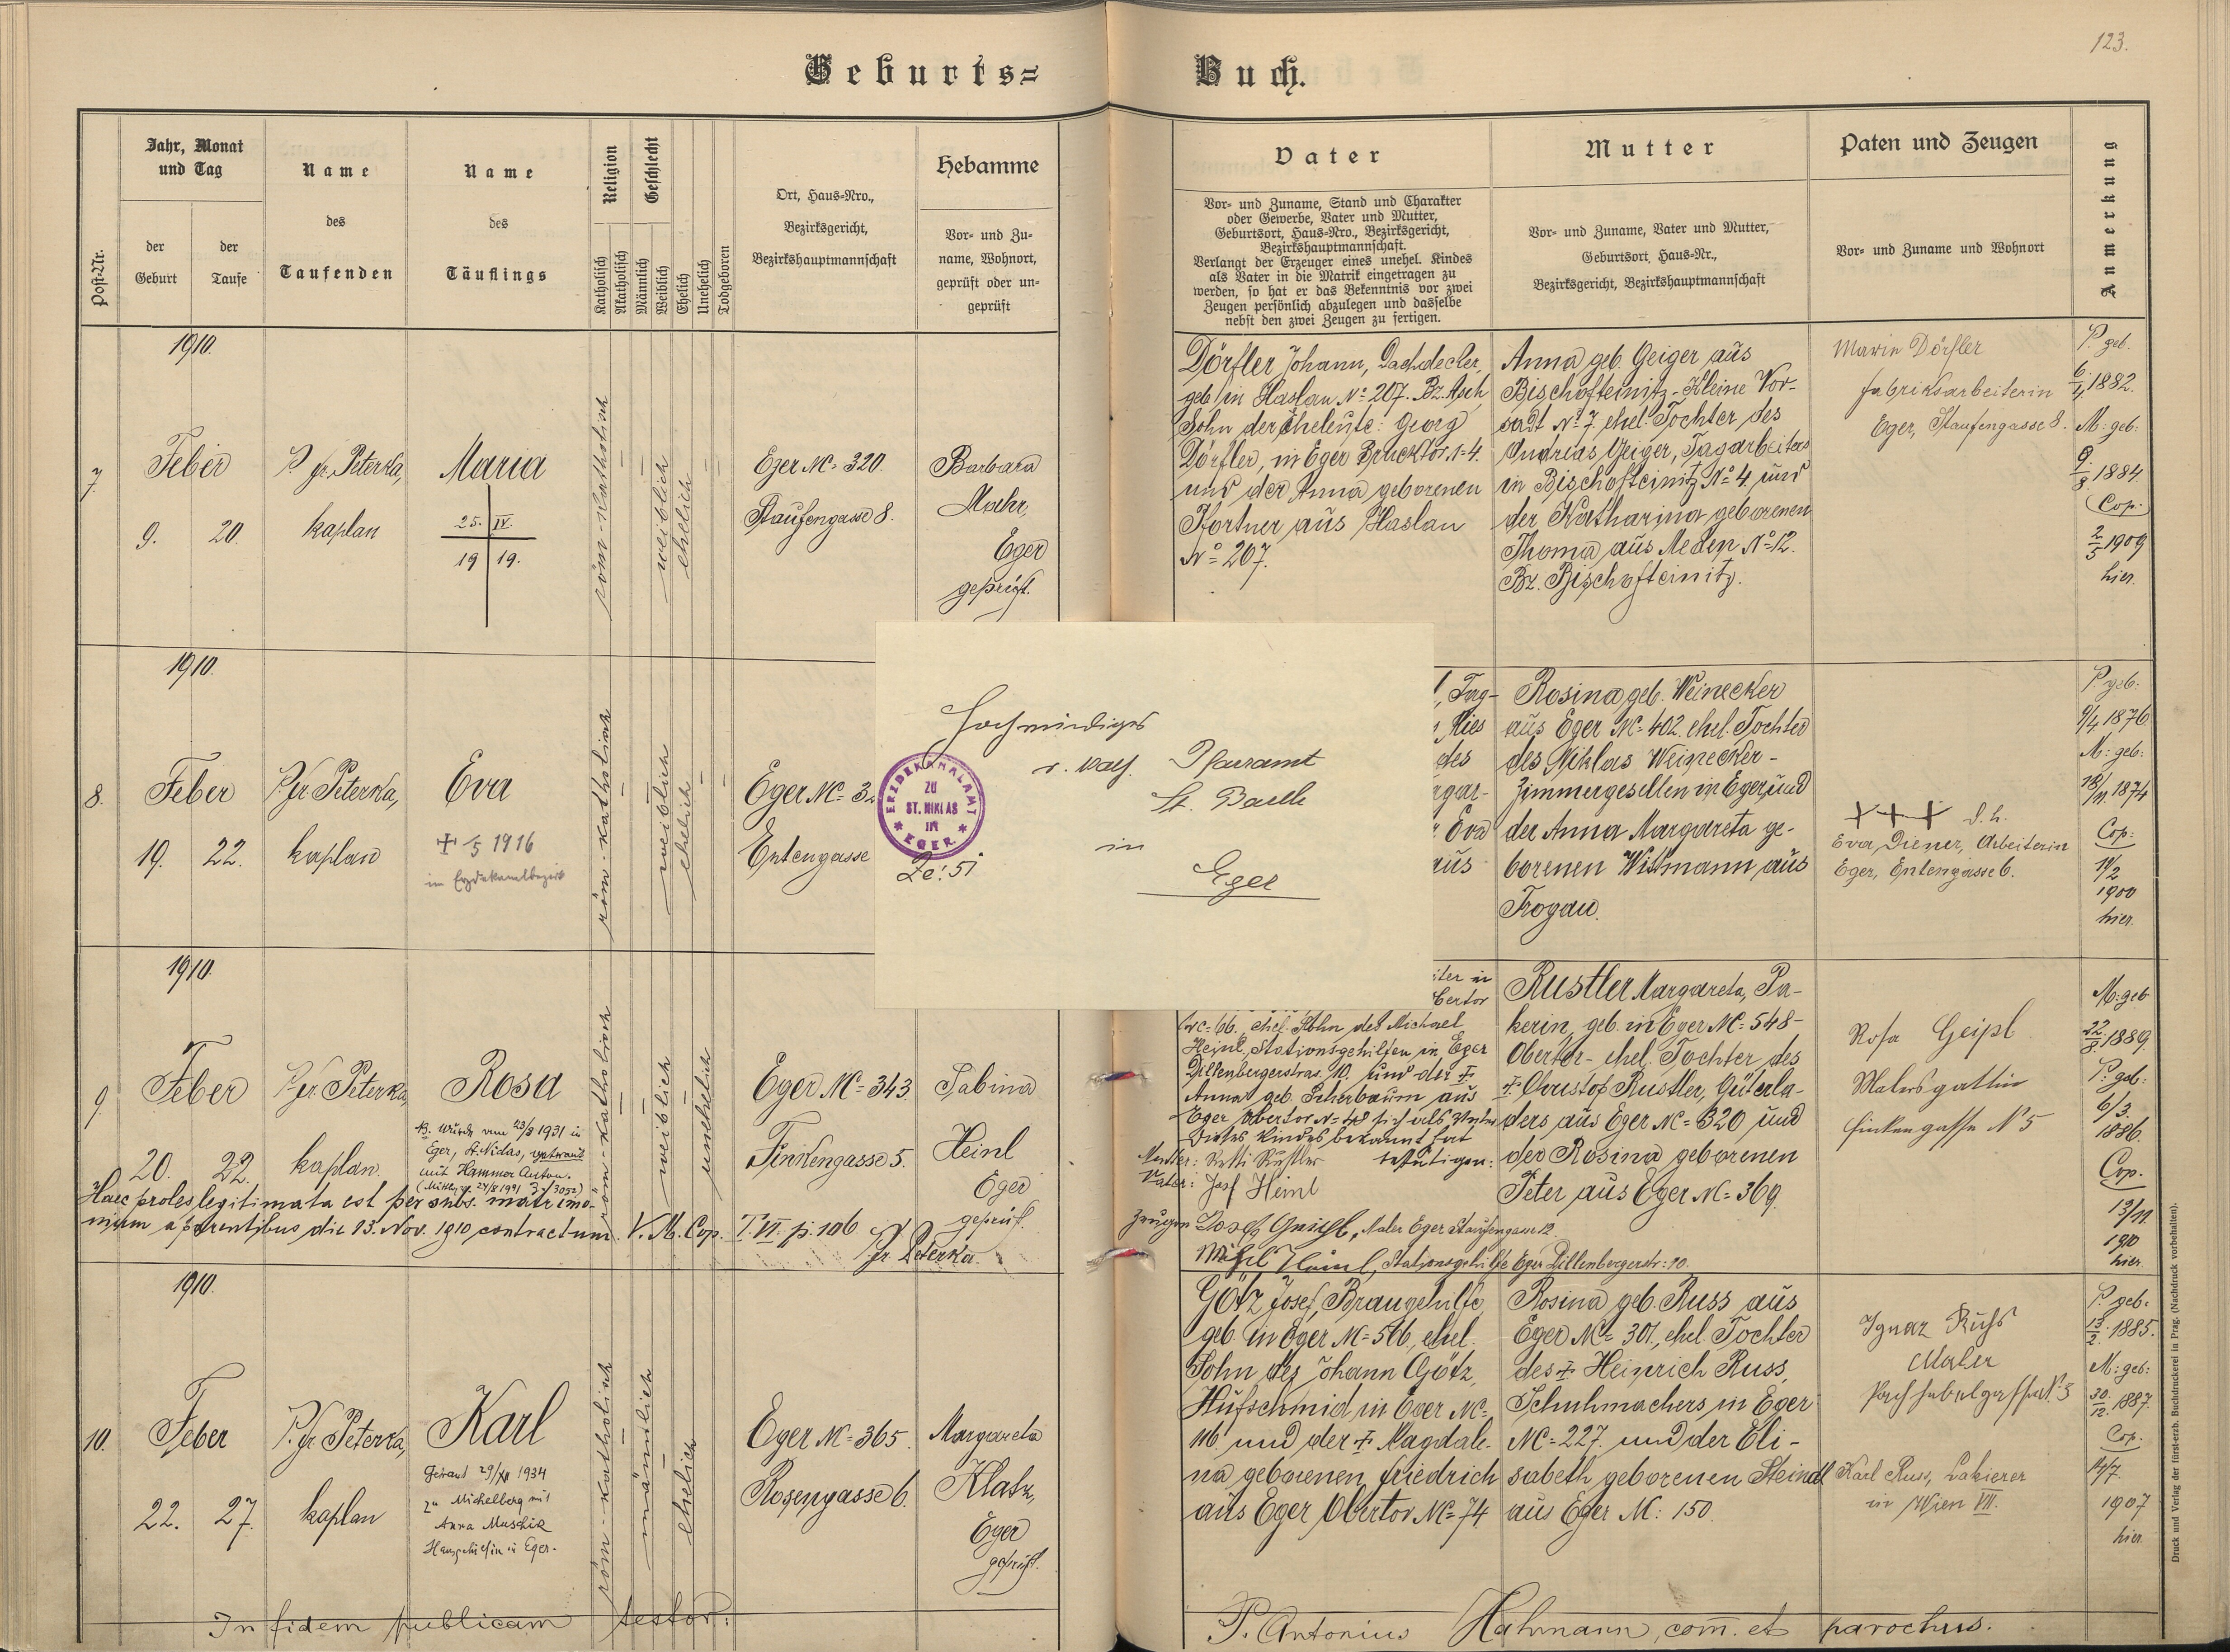 123.
Geburts=
Buch.
Post-Nr.
Jahr, Monat
und Tag
der
Geburt
der
Taufe
Name
des
Taufenden
Name
des
Täuflings
Religion
Katholisch
Akatholisch
Geschlecht
Männlich
Weiblich
Ehelich
Unehelich
Todgeboren
Ort, Haus-Nro.,
Bezirksgericht,
Bezirkshauptmannschaft
Hebamme
Vor- und Zu-
name, Wohnort,
geprüft oder un-
geprüft
Vater
Vor- und Zuname, Stand und Charakter
oder Gewerbe, Vater und Mutter,
Geburtsort, Haus-Nro., Bezirksgericht,
Bezirkshauptmannschaft.
Verlangt der Erzeuger eines unehel. Kindes
als Vater in die Matrik eingetragen zu
werden, so hat er das Bekenntnis vor zwei
Zeugen persönlich abzulegen und dasselbe
nebst den zwei Zeugen zu fertigen.
Mutter
Vor- und Zuname, Vater und Mutter,
Geburtsort, Haus-Nr.,
Bezirksgericht, Bezirkshauptmannschaft
Paten und Zeugen
Vor- und Zuname und Wohnort
Anmerkung
1910.
7.
Feber
9. 20.
P. fr. Peterka,
kaplan
Maria
25. IV.
19 19.
röm-katholisch
weiblich
ehelich
Eger Nc= 320.
Staufengasse 8.
Barbara
Mahr,
Eger
geprüft.
Dörfler Johann, Dachdecker,
geb. in Haslau No= 207. Bz. Asch
Sohn der Eheleute: Georg
Dörfler, in Eger Brucktor 1=4.
und der Anna geborenen
Pfortner aus Haslau
No= 207.
Anna geb. Geiger aus
Bischofteinitz-Kleine Vor-
sadt No 7, ehel. Tochter des
Andreas Geiger, Tagarbeiters
in Bischofteinitz No= 4 und
der Katharina geborenen
Thoma aus Meden No=12.
Bz. Bischofteinitz.
Marie Dörfler
fabriksarbeiterin
Eger, Staufengasse 8.
P. geb.
6/4 1882.
M: geb:
9/8 1884.
Cop.
2/5 1909
hier.
1910.
8.
Feber
19. 22.
P. fr. Peterka,
kaplan
Eva
+ 5 1916
im Erzdekanalbezirk
röm.-katholisch
weiblich
ehelich
Eger Nc= 32
Entengasse
Hochwürdiges
r. kath. Pfarramt
in
Eger
ERZDEKANALAMT
ZU
ST. NIKLAS
IN
EGER.
Ze: 51
, Tag-
Ries
des
Eva
aus
Rosina geb. Weinecker
aus Eger Nc= 402. ehel. Tochter
des Niklas Weinecker-
Zimmergesellen in Eger und
der Anna Margareta ge-
borenen Wittmann aus
Trogau.
+++ d. h.
Eva Diener, Arbeiterin
Eger, Entengasse 6.
P geb:
9/4 1876
M: geb:
18/11. 1874
Cop:
19/2
1900
hier.
1910.
9.
Feber
20. 22.
P. fr. Peterka,
kaplan.
Rosa
NB. Wurde am 23/8 1931 in
Eger, St. Niklas, getraut
mit Hammer Anton.
röm-katholisch
weiblich
unehelich
Eger Nc= 343.
Finkengasse 5.
Sabina
Heinl
Eger
geprüft.
Haec proles legitimata est per subs. matrimo-
nium a parentibus die 13. Nov. 1910 contractum. V. M. Cop. T. VI. p. 106
fr. Peterka.
iter in
bertor
Nc= 66. ehel. Sohn des Michael
Heinl, Stationsgehilfen in Eger
Dillenbergerstras. 10. und der +
Anna geb. Scherbaum aus
Eger Obertor N= 48 sich als Vater
Dieses Kindes bekannt hat
bestätigen:
Mutter: Betti Rustler
Vater: Josf Heinl
Zeugen Maler Eger Staufengasse 12
Heinl, Stationsgehilfe Eger Dillenbergerstr: 10.
Rustler Margareta, Pa-
kerin, geb. in Eger Nc= 548-
Obertor- ehel. Tochter des
+ Christof Rustler, Güterla-
ders aus Eger Nc= 320 und
der Rosina geborenen
Peter aus Eger Nc= 369.
Rosa Geipl
Malersgattin
Finkengasse N 5
M: geb
22/8. 1889.
P. geb:
6/3.
1886.
Cop.
13/11.
1910
hier.
1910.
10.
Feber
22. 27.
P. fr. Peterka,
kaplan
Karl
Getraut 29/XII 1934
zu Michelberg mit
Anna Muschik
Hausgehilfin in Eger.
röm-katholisch
männlich
ehelich
Eger Nc= 365.
Rosengasse 6.
Margareta
Klatz,
Eger
geprüft.
Götz Josef, Braugehilfe,
geb. in Eger Nc= 516., ehel.
Sohn des Johann Götz,
Hufschmid in Eger Nc=
116. und der + Magdale-
na geborenen Friedrich
aus Eger Obertor Nc= 74
Rosina geb. Russ aus
Eger Nc= 301, ehel. Tochter
des + Heinrich Russ,
Schuhmachers in Eger
Nc= 227. und der Eli-
sabeth geborenen Steindl
aus Eger Nc: 150.
Ignaz Ruß
Maler
Karl Russ, Lakierer
in Wien VII.
P. geb.
13/2. 1885.
M: geb:
30/12. 1887.
Cop.
14/7.
1907
hier.
In fidem publicam testor:
P. Antonius Hahmann, com̄. et parochus.
Druck und Verlag der fürst-erzb. Buchdruckerei in Prag. (Nachdruck vorbehalten).